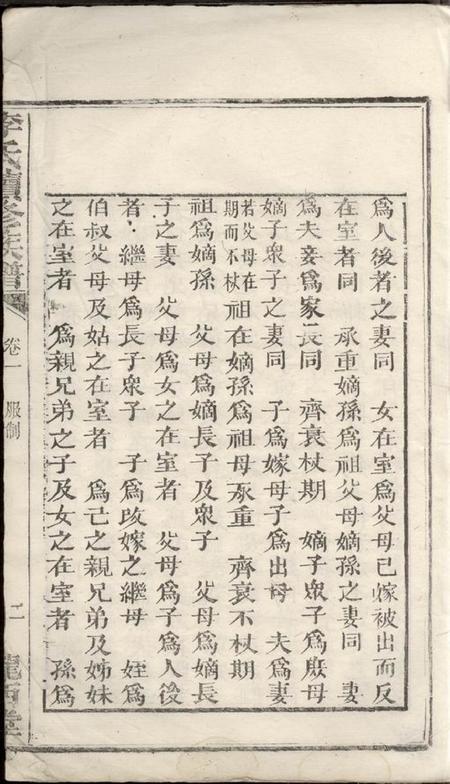 爲人後者之妻同　女在室爲父母已嫁被出而反
在室者同　承重嫡孫爲祖父母嫡孫之妻同　妻
爲夫妾爲家長同　齊衰杖期　嫡子衆子爲庶母
嫡子衆子之妻同　子爲嫁母子爲出母　夫爲妻
若父母在
期而不杖祖在嫡孫爲祖母承重　齊衰不杖期
祖爲嫡孫　父母爲嫡長子及衆子　父母爲嫡長
子之妻　父母爲女之在室者　父母爲子爲人後
者　繼母爲長子衆子　子爲改嫁之繼母　姪爲
伯叔父母及姑之在室者　爲己之親兄弟及姊妹
之在室者　爲親兄弟之子及女之在室者　孫爲
李氏續修族譜　卷一　服制　二